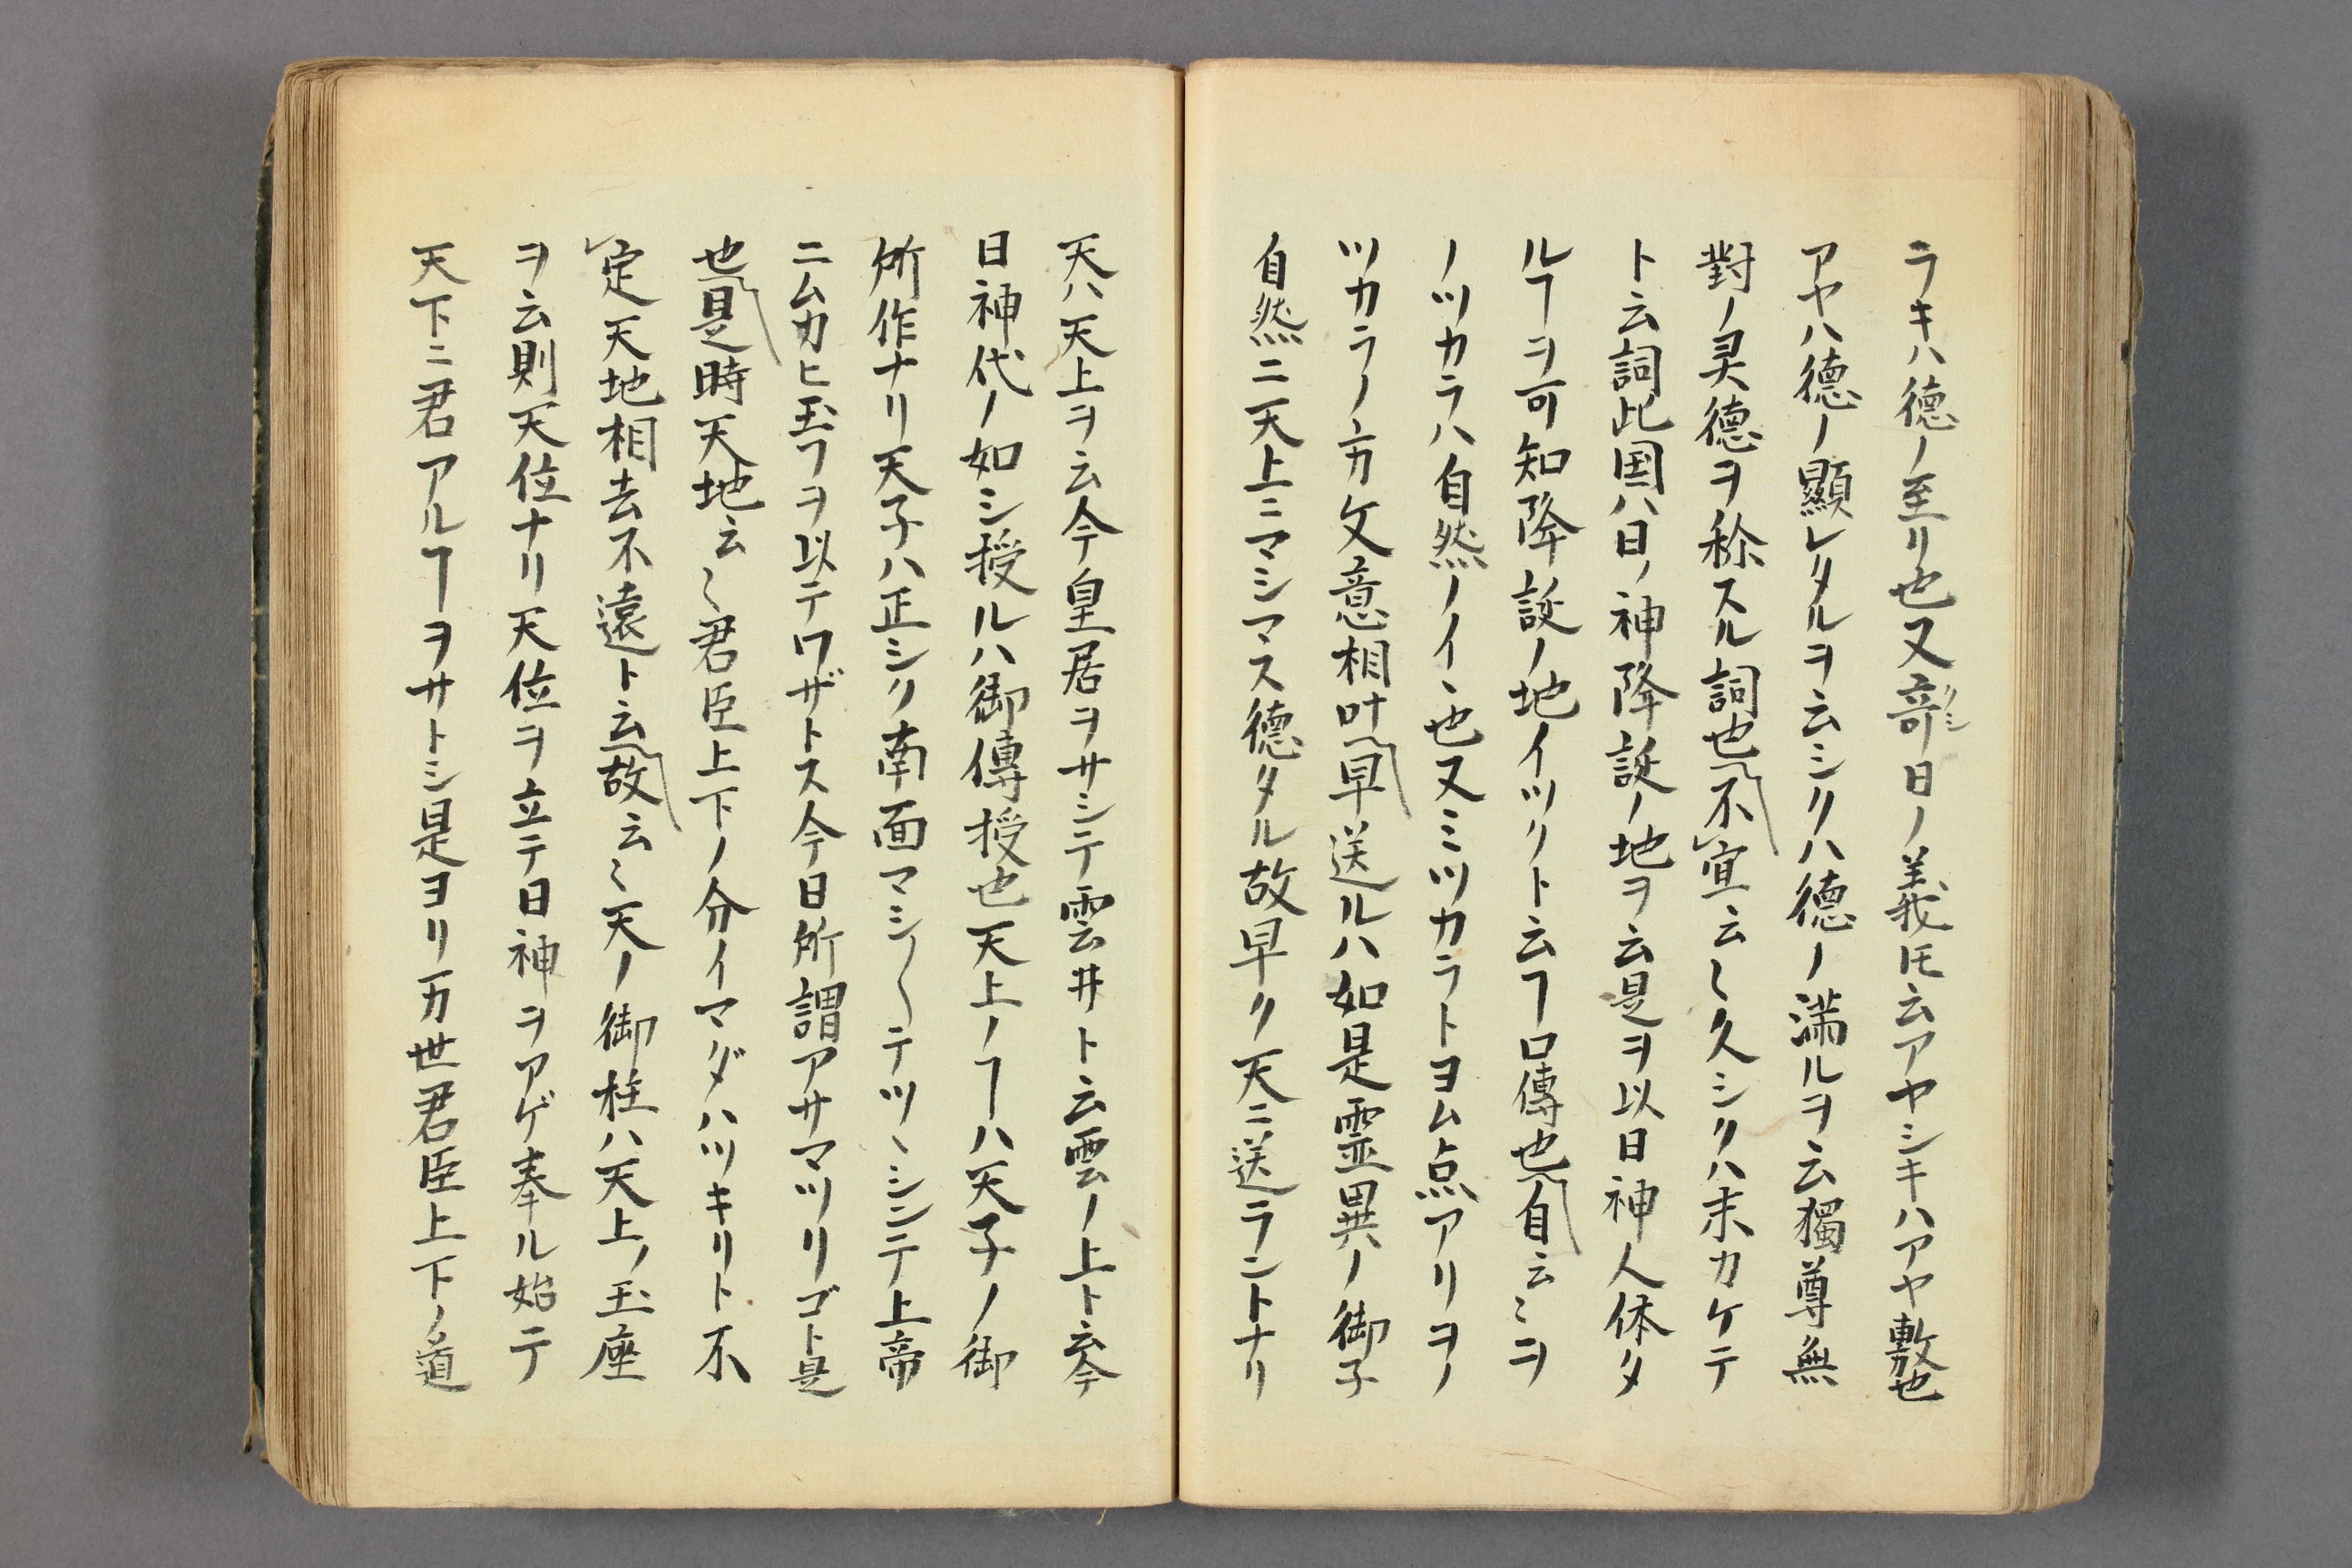 ラキハ德ノ至リ也又竒クシ日ノ義𪜈云アヤシキハアヤ敷也
アヤハ德ノ顯レタルヲ云シクハ德ノ満ルヲ云獨尊無
對ノ灵德ヲ称スル詞也不宜云〻久シクハ末カケテ
ト云詞此国ハ日ノ神降誕ノ地ヲ云是ヲ以日神人体タ
ルヿヲ可知降誕ノ地イツクト云ヿ口傳也自云〻ヲ
ノツカラハ自然ノイヽ也又ミツカラトヨム点アリヲノ
ツカラノ方文意相叶早送ルハ如是霊異ノ御子
自然ニ天上ニマシマス德タル故早ク天ニ送ラントナリ
天ハ天上ヲ云今皇居ヲサシテ雲井ト云雲ノ上ト云今
日神代ノ如シ授ルハ御傳授也天上ノヿハ天子ノ御
所作ナリ天子ハ正シク南面マシ〳〵テツヽシンテ上帝
ニムカヒ玉フヲ以テワザトス今日所謂アサマツリゴト是
也是時天地云〻君臣上下ノ分イマダハツキリト不
定天地相去不遠ト云故云〻天ノ御柱ハ天上ノ玉座
ヲ云則天位ナリ天位ヲ立テ日神ヲアゲ奉ル始テ
天下ニ君アルヿヲサトシ是ヨリ万世君臣上下ノ道